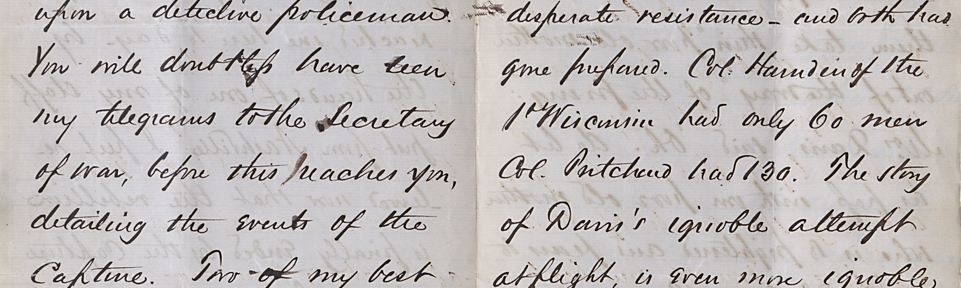 upon a detective policeman.
You will doubtless have seen
my telegrams to the Secretary
of war, before this reaches you,
detailing the events of the
Capture. Two of my best
desperate resistance – and both had
gone prepared. Col. Harnden of the
1st Wisconsin had only 60 men
Col. Pritchard had 130. The story
of Davis's ignoble attempt
at flight, is even more ignoble